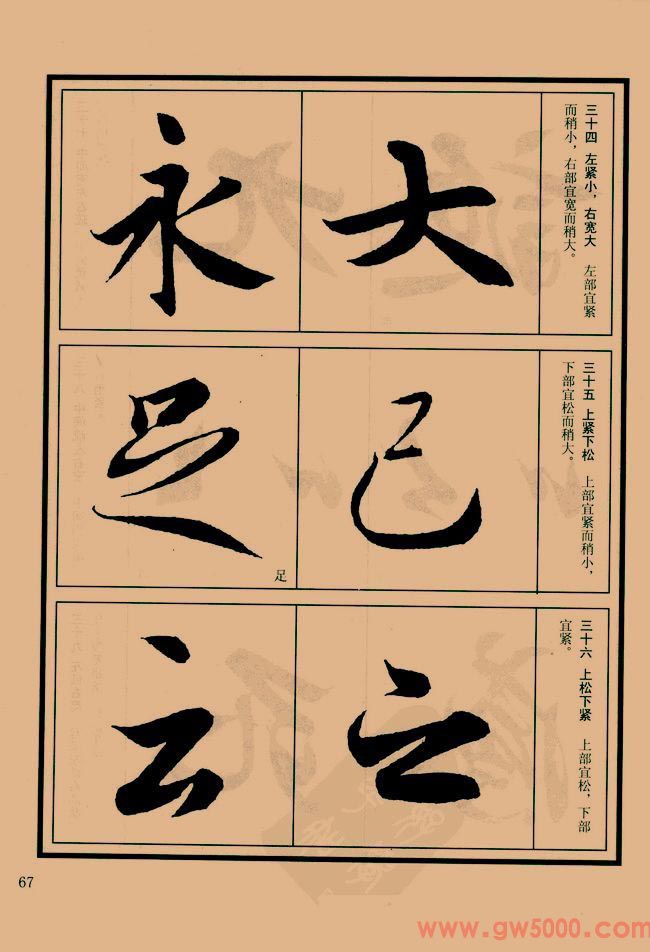 三十四 左紧小，右宽大 左部宜紧
而稍小，右部宜宽而稍大。
大
永
三十五 上紧下松 上部宜紧而稍小，
下部宜松而稍大。
已
足
足
三十六 上松下紧 上部宜松，下部
宜紧。
之
云
67
www.gw5000.com